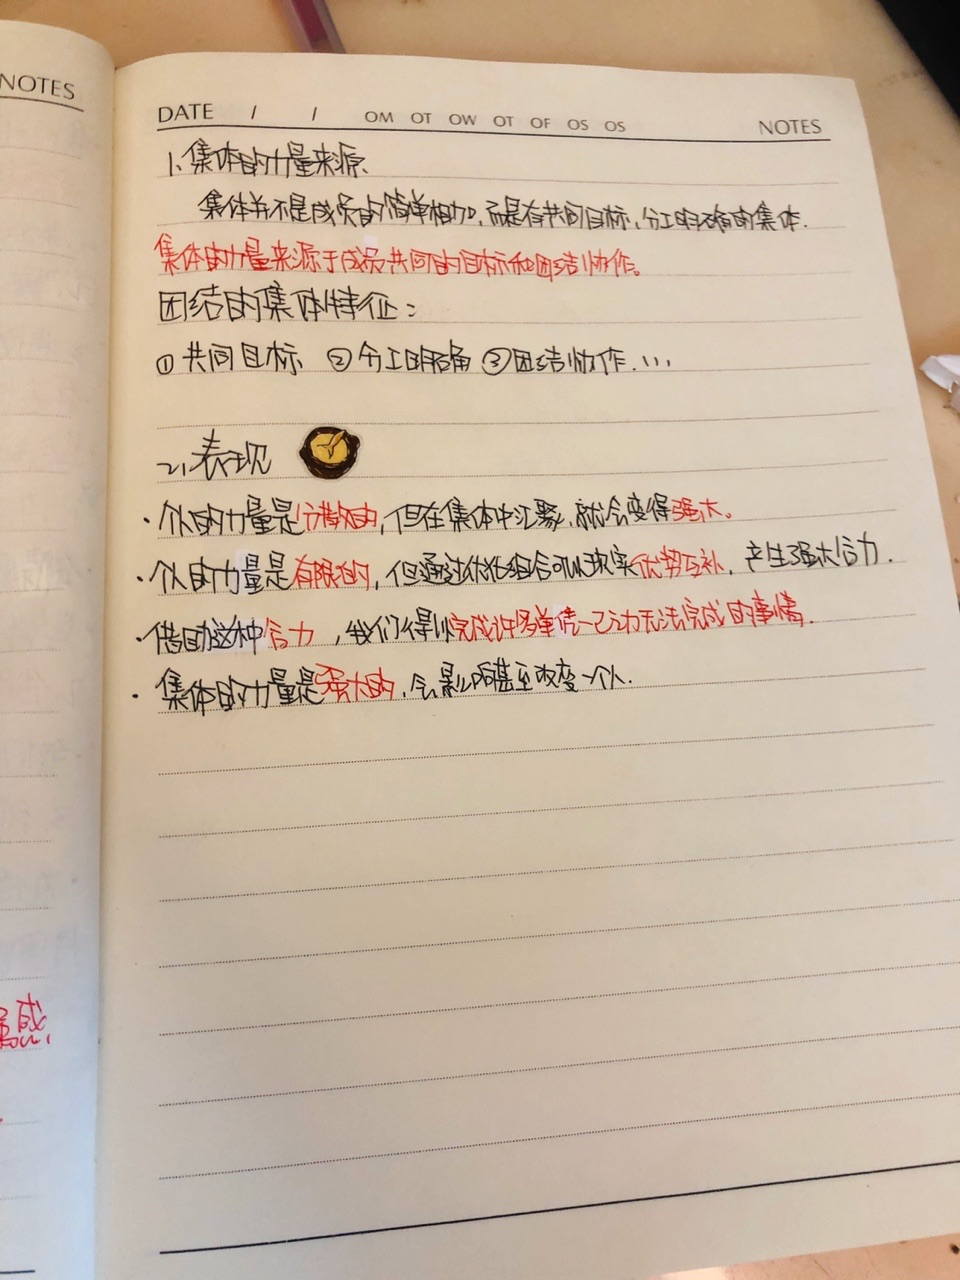 NOTES
DATE / / OM OT OW OT OF OS OS NOTES
1、集体的力量来源、
集体并不是成员的简单相加,而是有共同目标、分工明确的集体.
集体的力量来源于成员共同的目标和团结协作。
团结的集体特征：
①共同目标 ②分工明确 ③团结协作...
二、表现
·个人的力量是分散的,但在集体中汇聚、就会变得强大。
·个人的力量是有限的,但通过优化组合可以实现优势互补,产生强大合力.
·借助这种合力,我们得以完成许多单凭一己之力无法完成的事情.
·集体的力量是强大的,会影响甚至改变一个人.
感